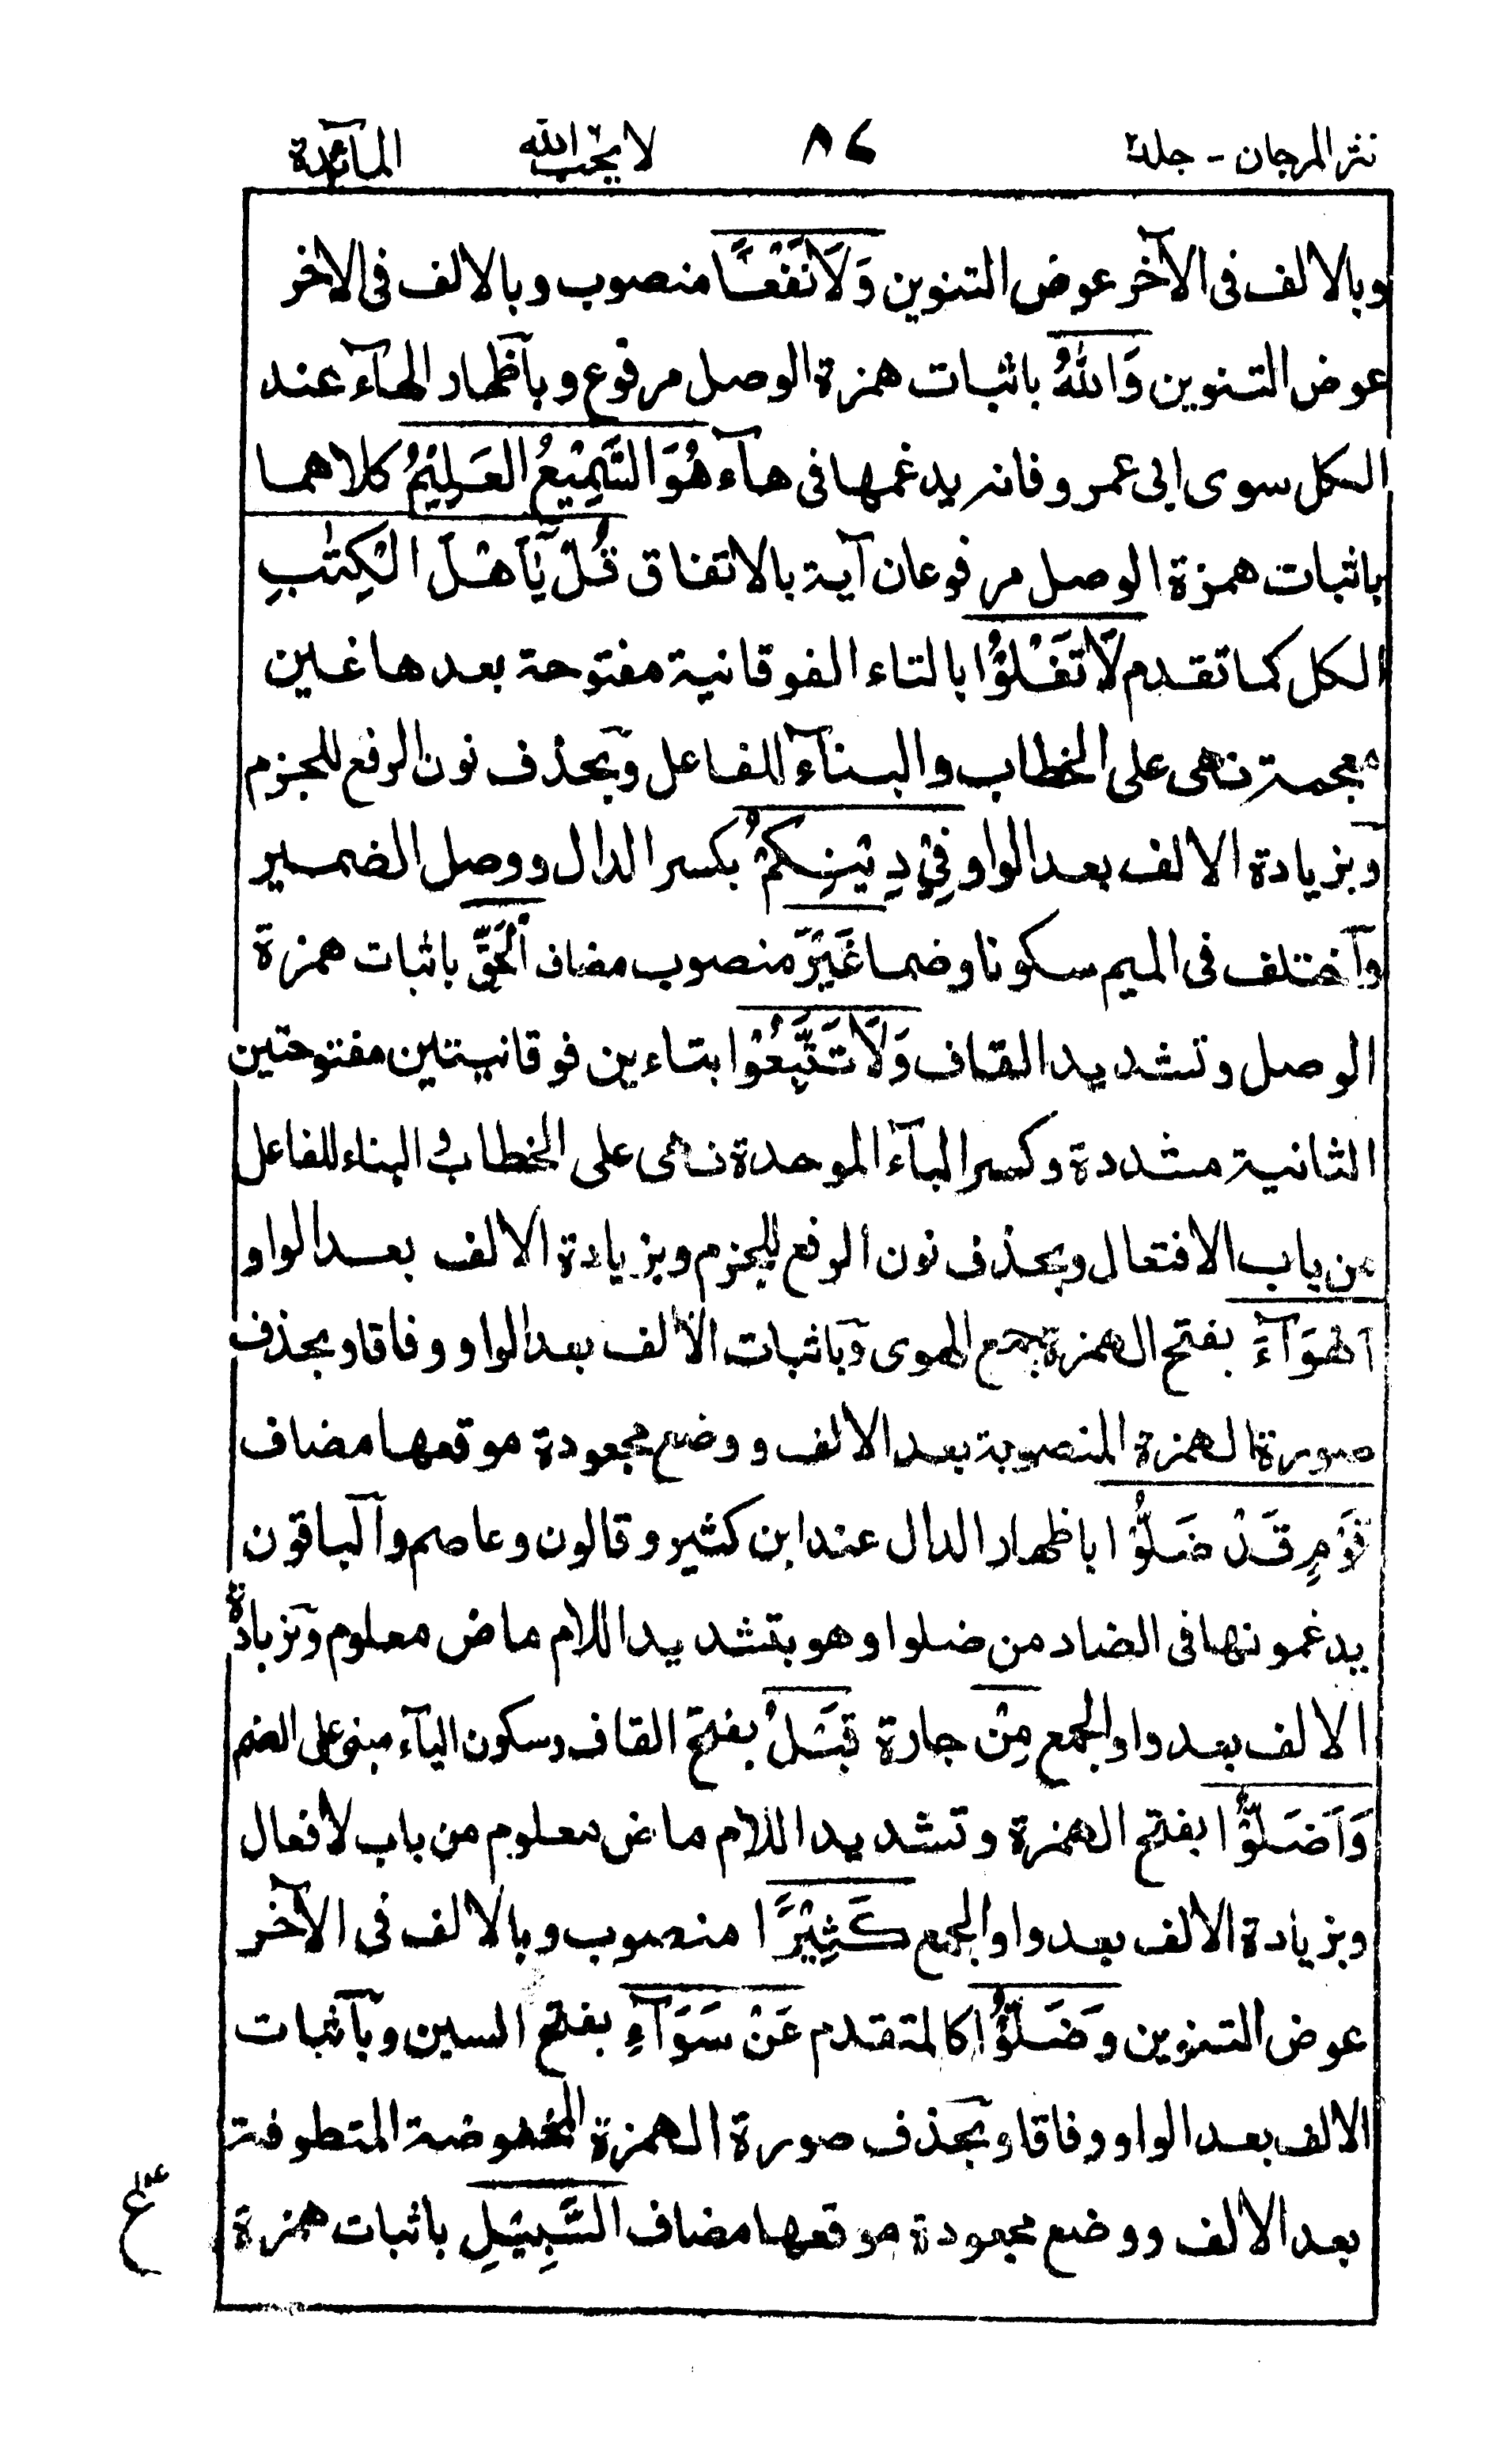 نثر المرجان - جلد٢ ٨٤ لا يحب الله المآئدة
وبالالف فى الآخر عوض التنوين وَلَا نَفْعًا منصوب وبالالف فى الاخر
عوض التنوين وَاللهُ باثبات همزة الوصل مرفوع وبآظهار الهآء عند
الكل سوى ابى عمرو فانه يدغمها فى هآء هُوَ السَّمِيْعُ الْعَلِيْمُ كلاهما
باثبات همزة الوصل مرفوعان آية بالاتفاق قُلْ يٰٓاَهْلَ الْكِتٰبِ
الكل كما تقدم لَا تَغْلُوْا بالتاء الفوقانية مفتوحة بعدها غين
معجمة نهى على الخطاب والبنآء للفاعل وبحذف نون الرفع للجزم
وبزيادة الالف بعد الواو فِيْ دِيْنِكُمْ بكسر الدال ووصل الضمير
وآختلف فى الميم سكونا وضما غَيْرَ منصوب مضاف الْحَقِّ باثبات همزة
الوصل وتشديد القاف وَلَا تَتَّبِعُوْا بتاءين فوقانيتين مفتوحتين
الثانية مشددة وكسر البآء الموحدة نهى على الخطاب والبناء للفاعل
من باب الافتعال وبحذف نون الرفع للجزم وبزيادة الالف بعد الواو
اَهْوَآءَ بفتح الهمزة جمع الهوى وباثبات الالف بعد الواو وفاقا وبحذف
صورة الهمزة المنصوبة بعد الالف ووضع مجعودة موقعها مضاف
قَوْمٍ قَدْ ضَلُّوْا باظهار الدال عند ابن كثير وقالون وعاصم وآلباقون
يدغمونها فى الضاد من ضلوا وهو بتشديد اللام ماض معلوم وبزيادة
الالف بعد واو الجمع مِنْ جارة قَبْلُ بفتح القاف وسكون البآء مبنى على الضم
وَاَضَلُّوْا بفتح الهمزة وتشديد اللام ماض معلوم من باب لافعال
وبزيادة الالف بعد واو الجمع كَثِيْرًا منصوب وبالالف فى الآخر
عوض التنوين وَضَلُّوْا كالمتقدم عَنْ سَوَآءِ بفتح السين وبآثبات
الالف بعد الواو وفاقا وبحذف صورة الهمزة المخفوضة المتطوفة
بعد الالف ووضع مجعودة موقعها مضاف السَّبِيْلِ باثبات همزة